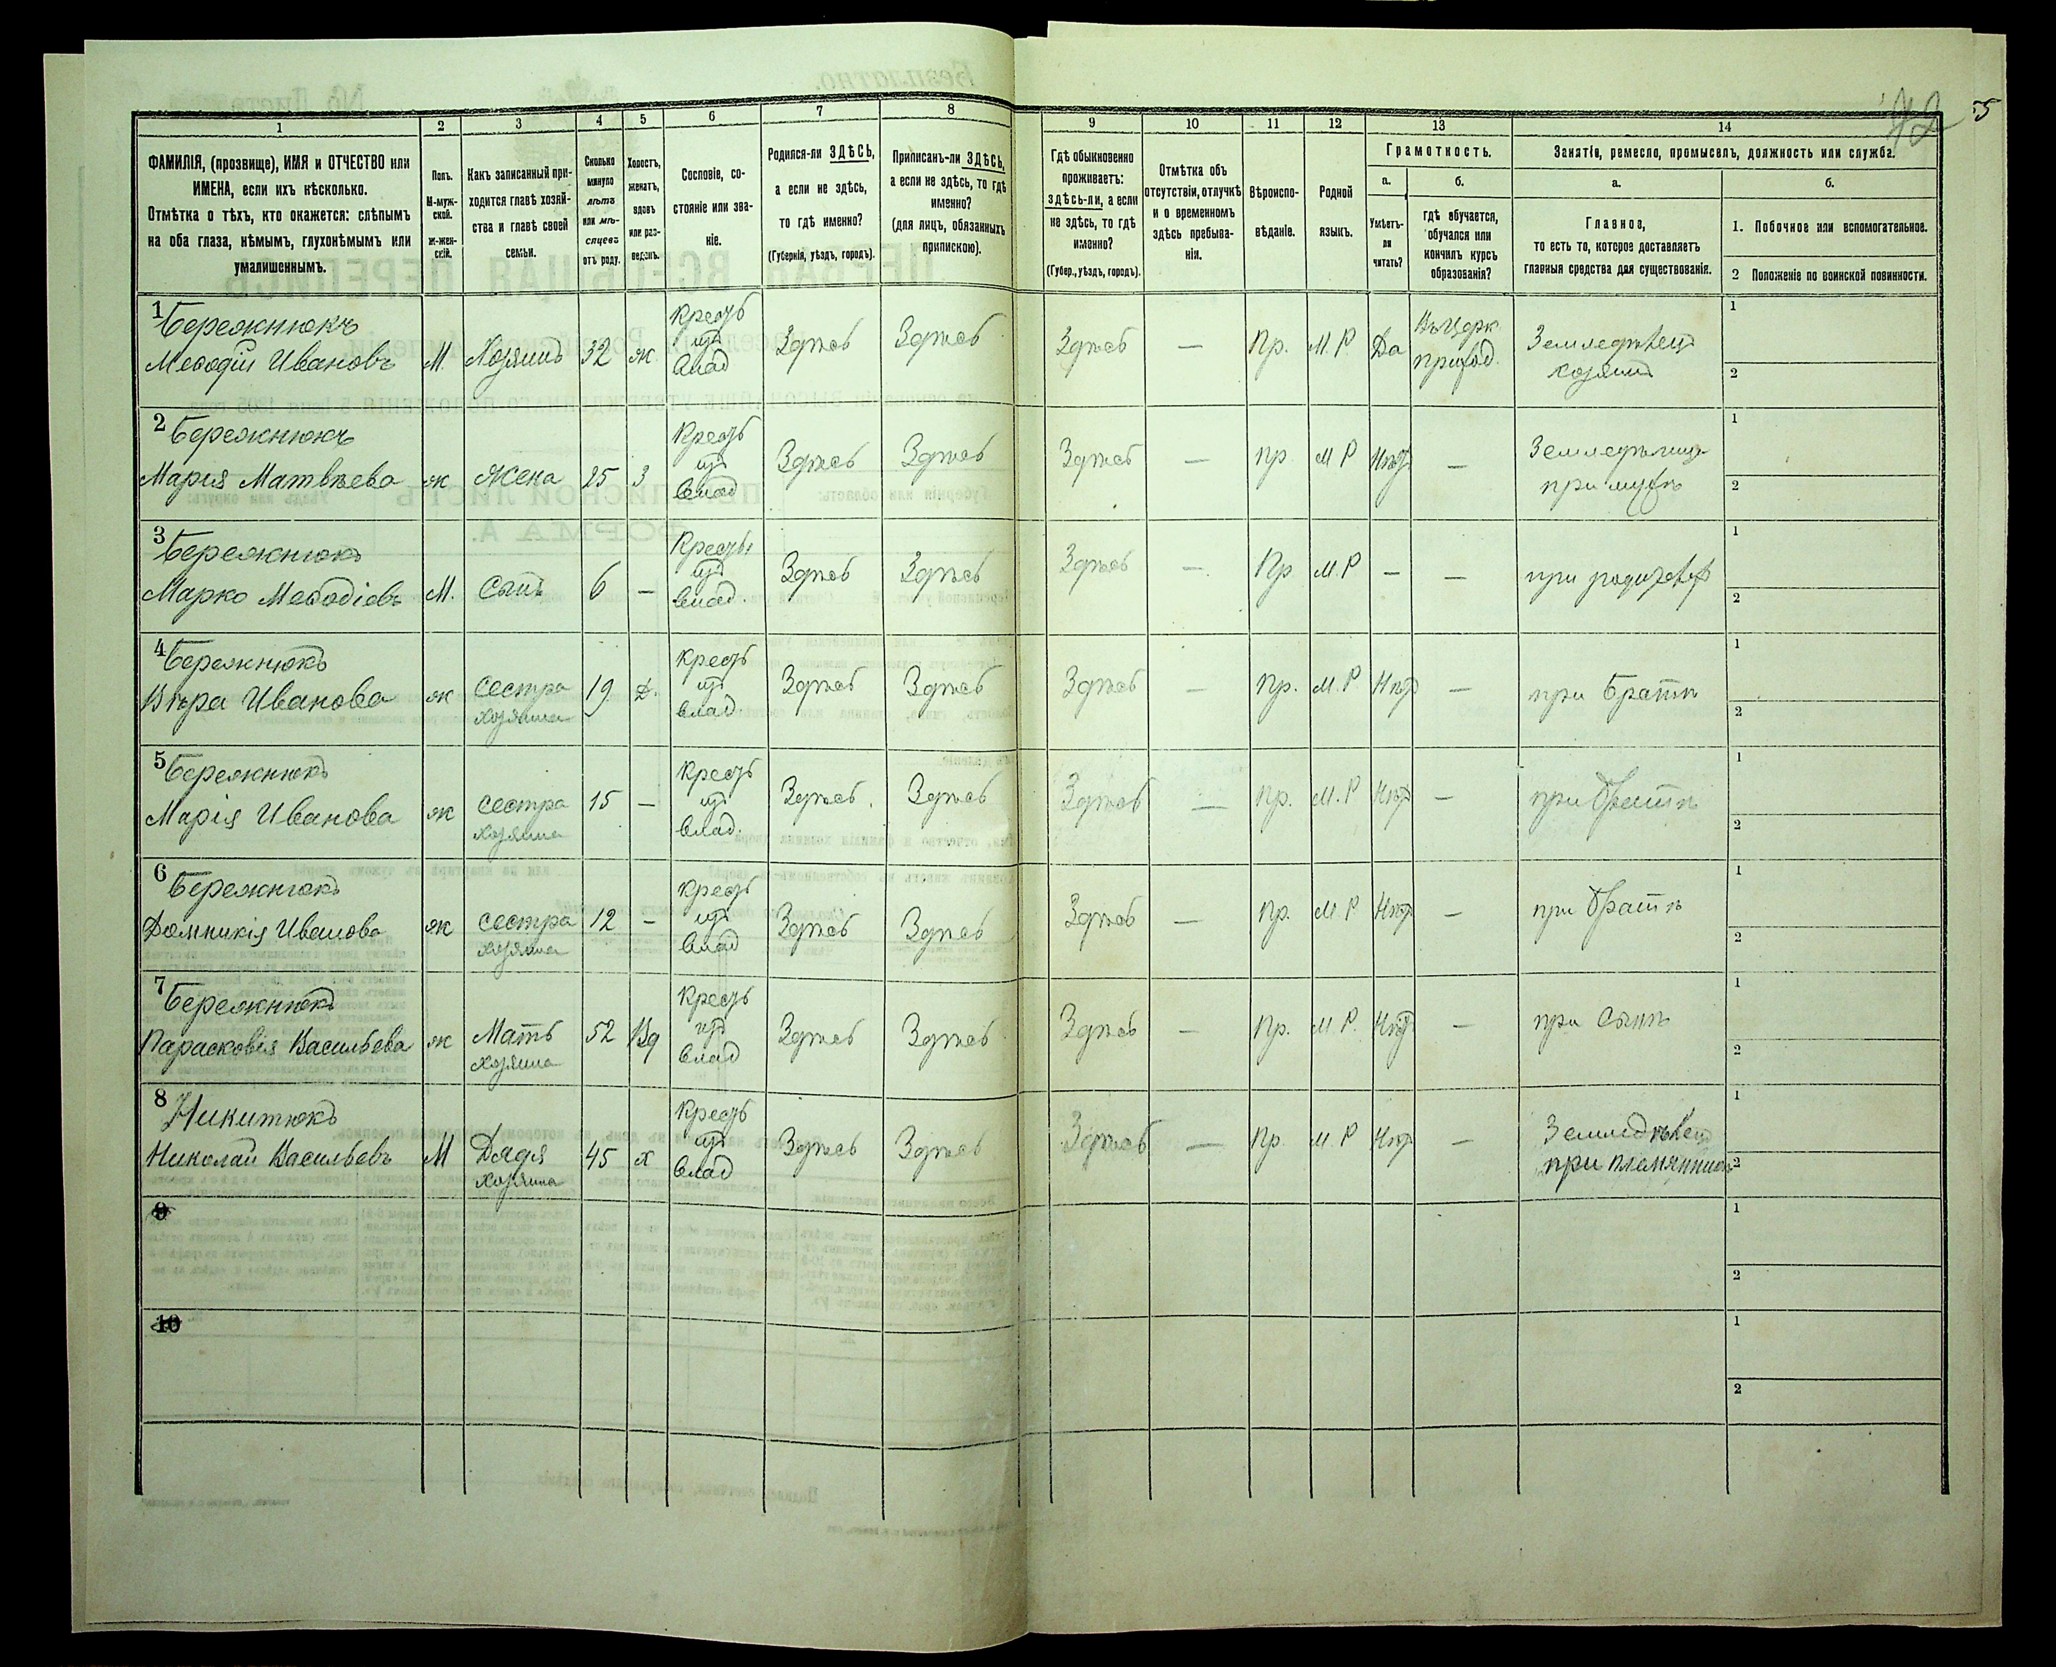 42
55
1
2
3
4
5
6
7
8
9
10
11
12
13
14
ФАМИЛІЯ, (прозвище), ИМЯ и ОТЧЕСТВО или
ИМЕНА, если ихъ нѣсколько.
Отмѣтка о тѣхъ, кто окажется: слѣпымъ
на оба глаза, нѣмымъ, глухонѣмымъ или
умалишеннымъ.
Полъ.
М-муж-
ской.
Ж-жен-
скій.
Какъ записанный при-
ходится главѣ хозяй-
ства и главѣ своей
семьи.
Сколько
минуло
лѣтъ
или мѣ-
сяцевъ
отъ роду.
Холостъ,
женатъ,
вдовъ
или раз-
веденъ.
Сословіе, со-
стояніе или зва-
ніе.
Родился-ли ЗДѢСЬ,
а если не здѣсь,
то гдѣ именно?
(Губернія, уѣздъ, городъ).
Приписанъ-ли ЗДѢСЬ,
а если не здѣсь, то гдѣ
именно?
(для лицъ, обязанныхъ
припискою).
Гдѣ обыкновенно
проживаетъ:
здѣсь-ли, а если
не здѣсь, то гдѣ
именно?
(Губер., уѣздъ, городъ).
Отмѣтка объ
отсутствіи, отлучкѣ
и о временномъ
здѣсь пребыва-
ніи.
Вѣроиспо-
вѣданіе.
Родной
языкъ.
Грамотность.
а.
Умѣетъ-
ли
читать?
б.
гдѣ обучается,
обучался или
кончилъ курсъ
образованія?
Занятіе, ремесло, промыселъ, должность или служба.
а.
Главное,
то есть то, которое доставляетъ
главныя средства для существованія.
б.
1. Побочное или вспомогательное.
2 Положеніе по воинской повинности.
1 Бережнюкъ
Меѳодій Ивановъ М. Хозяинъ 32 ж Крест. изъ влад Здѣсь Здѣсь Здѣсь — Пр. М.Р Да Въ Церк. приход. Земледѣлец хозяинъ 1 2
2 Бережнюкъ
Марія Матвѣева ж Жена 25 З Крест. изъ влад Здѣсь Здѣсь Здѣсь — Пр М Р Нѣтъ — при мужѣ 1 2
3 Бережнюкъ
Марко Меѳодіевъ М. Сынъ 6 — Крест. изъ влад. Здѣсь Здѣсь Здѣсь — Пр М.Р — — при 1 2
4 Бережнюкъ
Вѣра Иванова ж Сестра хозяина 19 Д. Крест. изъ влад Здѣсь Здѣсь Здѣсь — Пр. М.Р Нѣтъ — при братѣ 1 2
5 Бережнюкъ
Марія Иванова ж Сестра хозяина 15 — Крест. изъ влад. Здѣсь. Здѣсь Здѣсь — Пр. М.Р Нѣтъ — при братѣ 1 2
6 Бережнюкъ
Домникія Иванова ж Сестра хозяина 12 — Крест. изъ влад Здѣсь Здѣсь Здѣсь — Пр. М Р Нѣтъ — при братѣ 1 2
7 Бережнюкъ
Парасковія Васильева ж Мать хозяина 52 Вд Крест. изъ влад Здѣсь Здѣсь Здѣсь — Пр. М.Р. Нѣтъ — при сынѣ 1 2
8 Никитюкъ
Николай Васильевъ М Дядя хозяина 45 х Крест. изъ влад Здѣсь Здѣсь Здѣсь — Пр. М Р Нѣтъ — Земледѣлец при племянникѣ 1 2
9 1 2
10 1 2